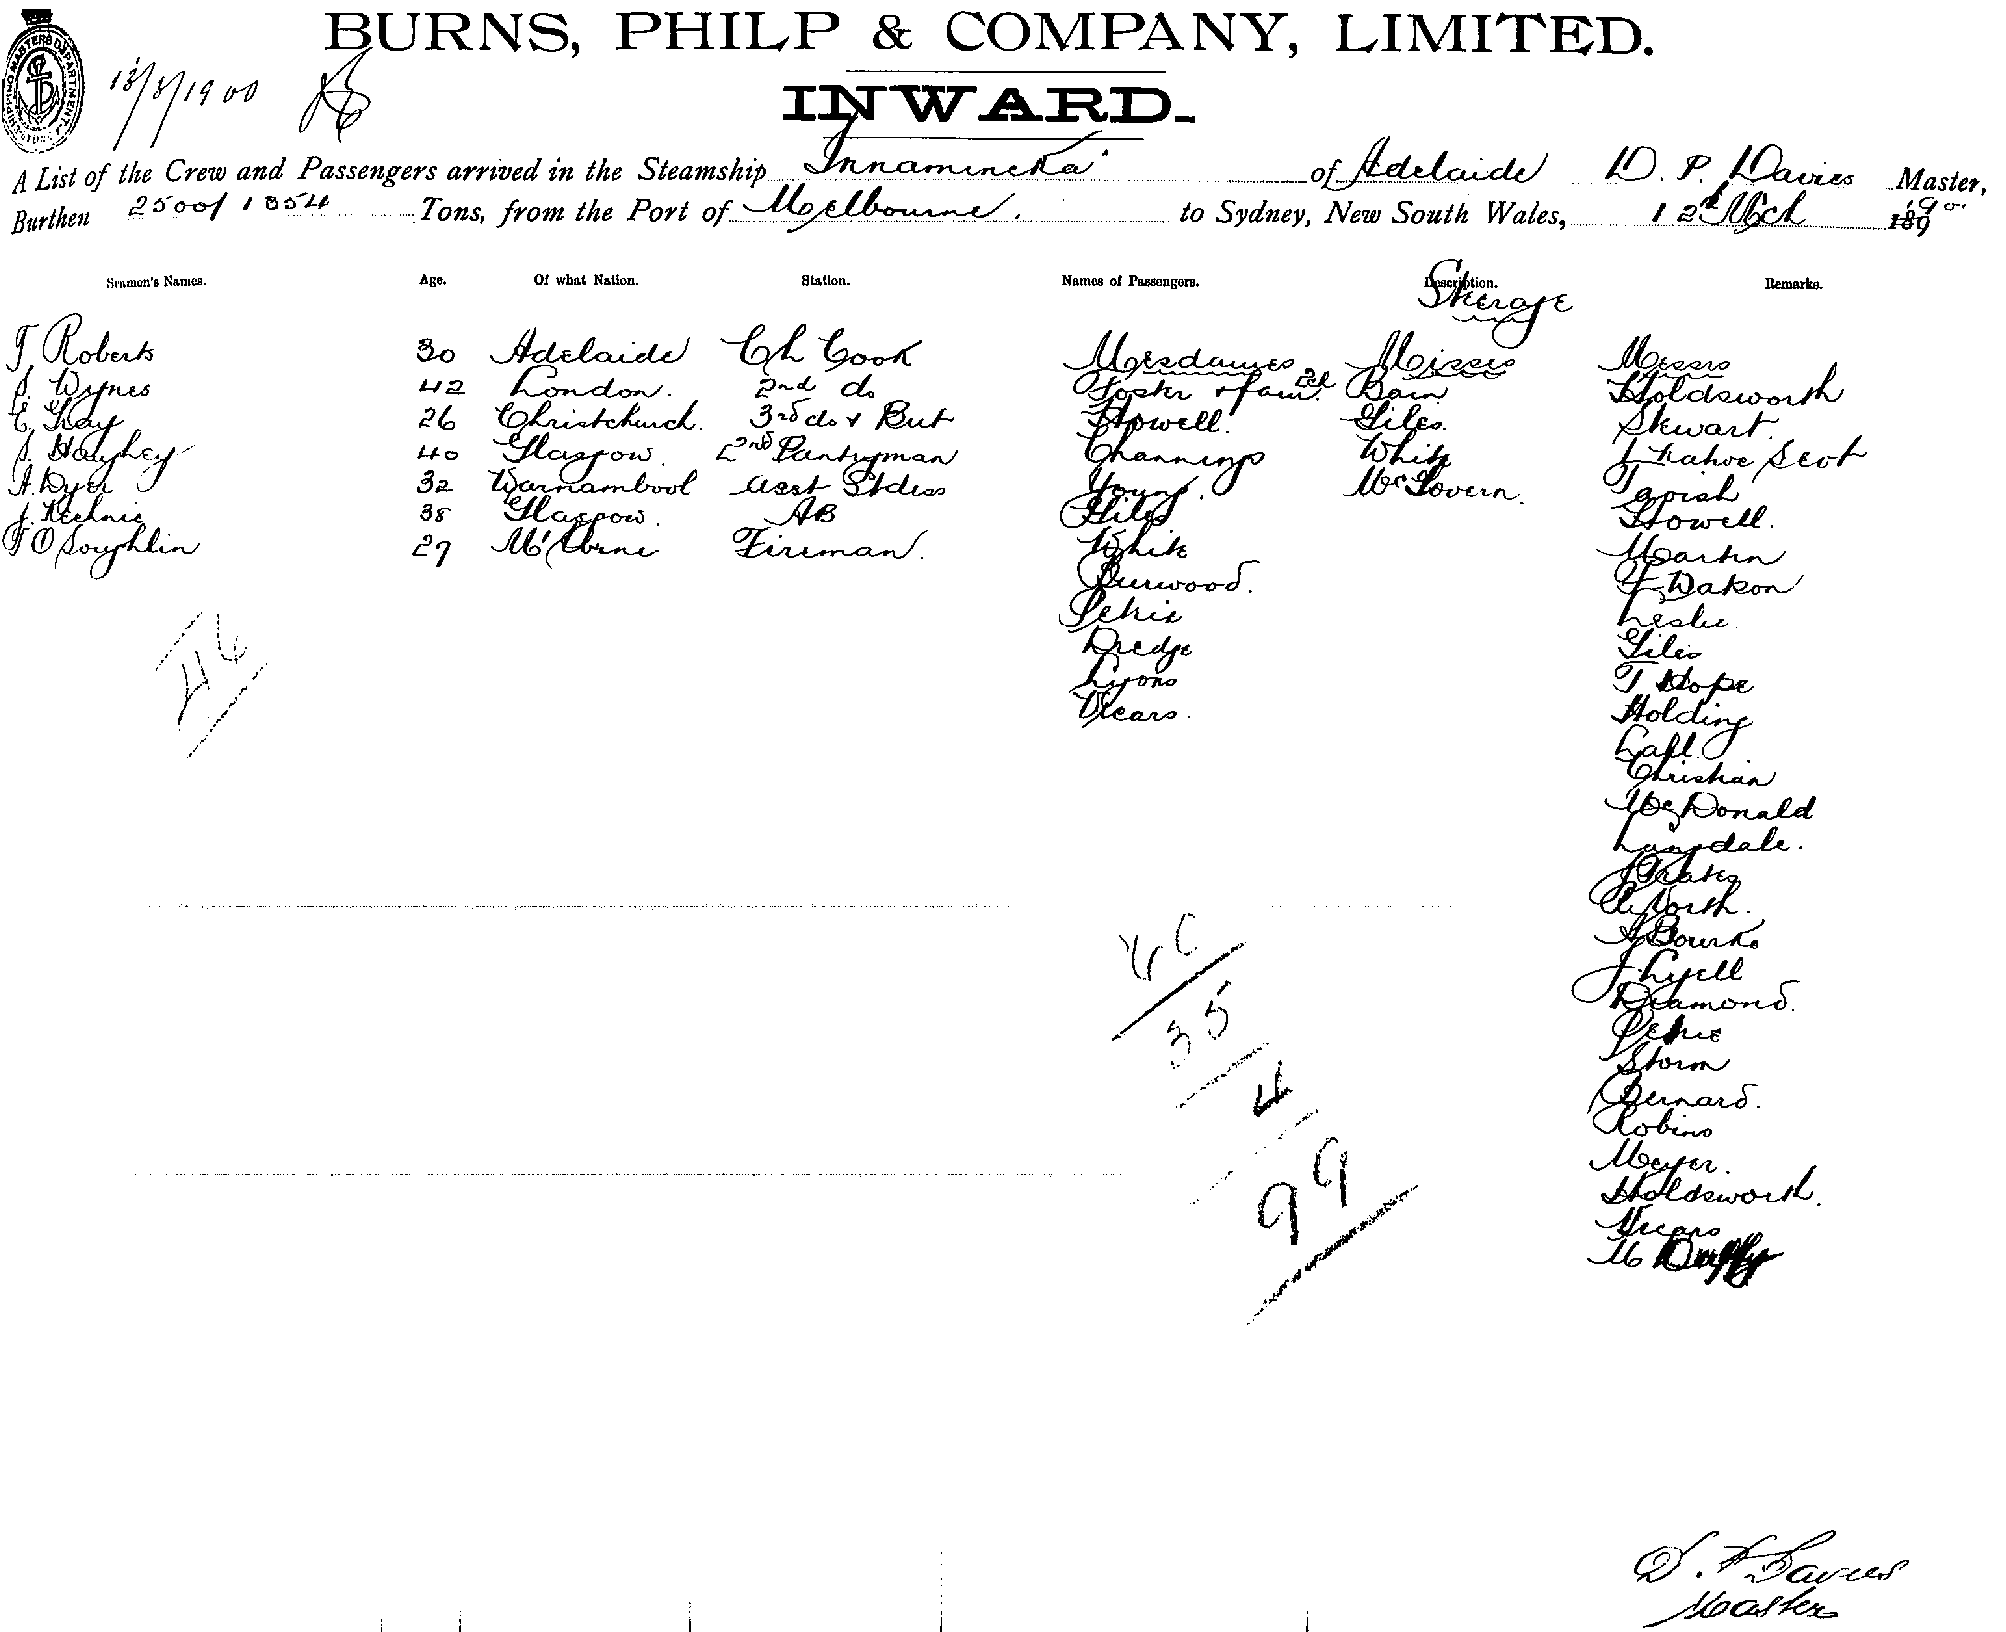 BURNS, PHILP & COMPANY, LIMITED.
13/3/1900
INWARD.
A List of the Crew and Passengers arrived in the Steamship Innamincka of Adelaide D. P. Davies Master,
Burthen 2500/1854 Tons, from the Port of Melbourne. to Sydney, New South Wales, 12th Mch 189 1900
Seamen's Names. Age. Of what Nation. Station. Names of Passengers. Description. Remarks.
Steerage
T Roberts 30 Adelaide Ch Cook Mesdames Misses Messrs
J. Dynes 42 London. 2nd do Foster & fam. Bain Holdsworth
E Gray 26 Christchurch. 3rd do & But Howell. Giles. Stewart.
J. Haughey 40 Glasgow 2nd Pantryman Channings White J Kahoe Scot
A. Dyer 32 Warnambool Asst Stdess Young. McGovern. Tapish
J. Kechnie 38 Glasgow. AB Giles Howell.
T O'Loughlin 27 M'lbrne Fireman. White Martin
Purwood. F Dakon
Petrie Leslie
Dredge Giles
Lyons T Hope
Vicars. Holding
46 Christian
McDonald
Langsdale.
J Prates
C. North.
A Bourke
J. Lyell
Diamond.
Petrie
Storm
Bernard.
Robins
Meyer.
Holdsworth.
Vicars
M Duffy
35
4
99
D. P. Davies
Master